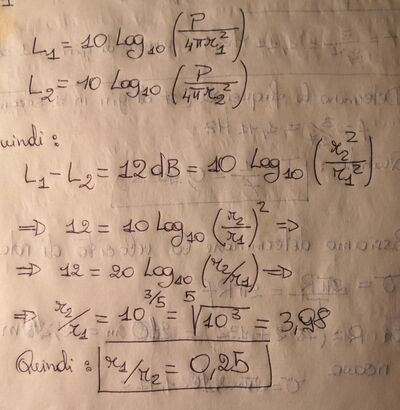 L₁ = 10 Log₁₀ (P/4πr₁²)
L₂ = 10 Log₁₀ (P/4πr₂²)
uindi:
L₁-L₂ = 12 dB = 10 Log₁₀ (r₂²/r₁²)
⇒ 12 = 10 Log₁₀ (r₂/r₁)² ⇒
⇒ 12 = 20 Log₁₀ (r₂/r₁) ⇒
⇒ r₂/r₁ = 10^3/5 = ⁵√10³ = 3,98
Quindi: r₁/r₂ = 0,25